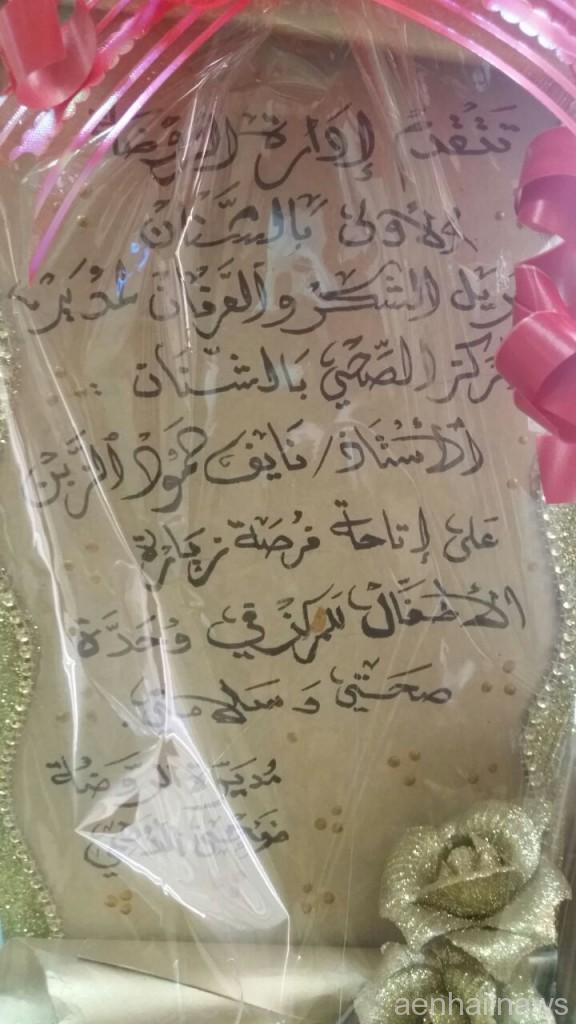 تتقدم إدارة الروضة
الأولى بالشنان
بجزيل الشكر والعرفان لمدير
المركز الصحي بالشنان ..
الأستاذ / نايف حمود الزبن
على إتاحة فرصة زيارة
الأطفال للمركز في وحدة
صحتي وسلامتي .
مديرة الروضة
aenhailnaws